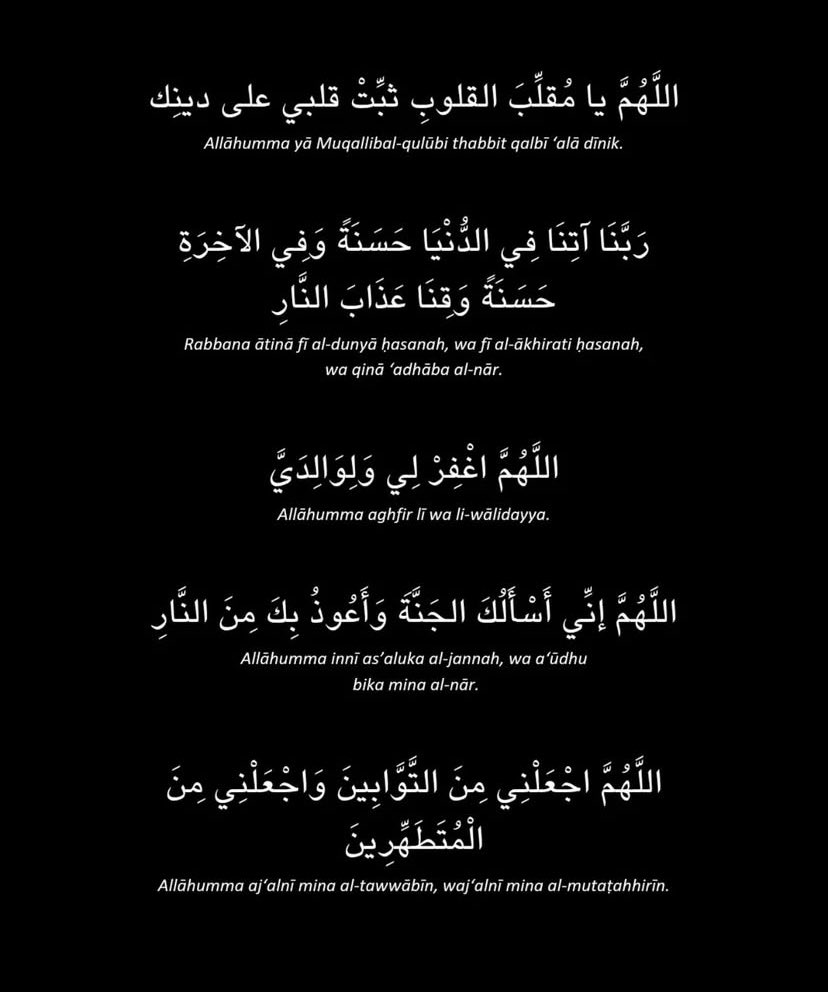 اللَّهُمَّ يا مُقلِّبَ القلوبِ ثبِّتْ قلبي على دينِك
Allāhumma yā Muqallibal-qulūbi thabbit qalbī ‘alā dīnik.
رَبَّنَا آتِنَا فِي الدُّنْيَا حَسَنَةً وَفِي الآخِرَةِ
حَسَنَةً وَقِنَا عَذَابَ النَّارِ
Rabbana ātinā fī al-dunyā ḥasanah, wa fī al-ākhirati ḥasanah,
wa qinā ‘adhāba al-nār.
اللَّهُمَّ اغْفِرْ لِي وَلِوَالِدَيَّ
Allāhumma aghfir lī wa li-wālidayya.
اللَّهُمَّ إنِّي أَسْأَلُكَ الجَنَّةَ وَأَعُوذُ بِكَ مِنَ النَّارِ
Allāhumma innī as’aluka al-jannah, wa a‘ūdhu
bika mina al-nār.
اللَّهُمَّ اجْعَلْنِي مِنَ التَّوَّابِينَ وَاجْعَلْنِي مِنَ
الْمُتَطَهِّرِينَ
Allāhumma aj‘alnī mina al-tawwābīn, waj‘alnī mina al-mutaṭahhirīn.